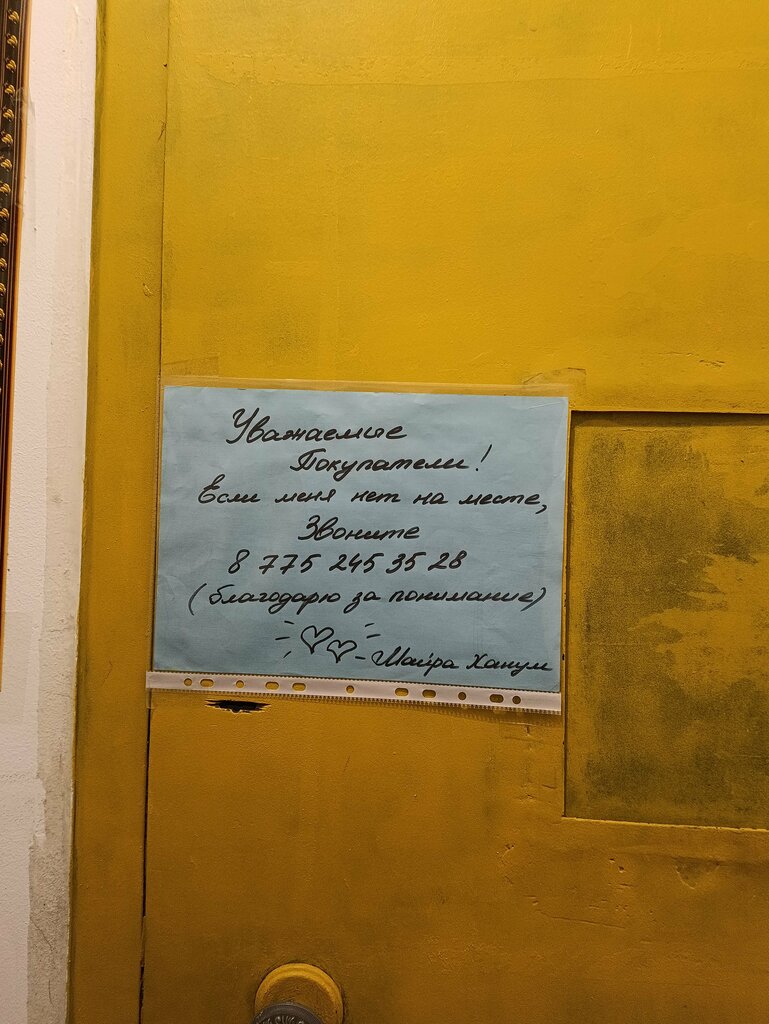 Уважаемые
Покупатели!
Если меня нет на месте,
Звоните
8 775 245 35 28
(благодарю за понимание)
- Майра Ханум